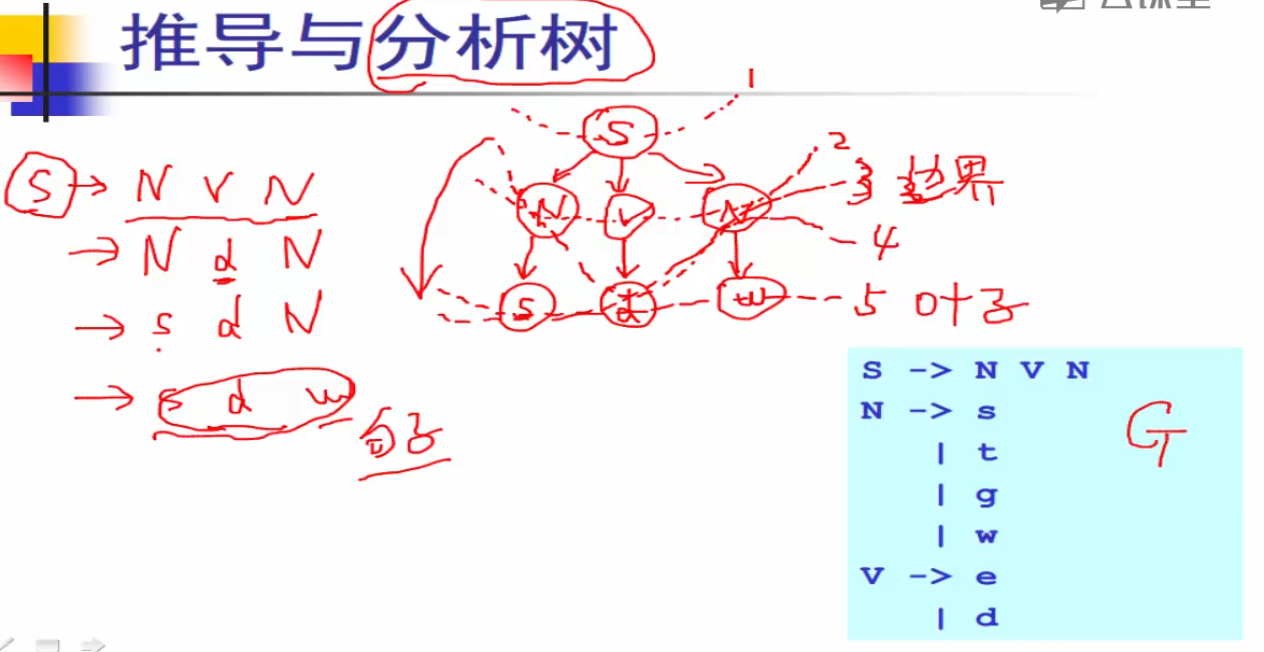 推导与分析树
S → N V N
→ N d N
→ s d N
→ s d w
句子
S
N V N
s d w
1
2
3 边界
4
5 叶子
S -> N V N
N -> s
| t
| g
| w
V -> e
| d
G